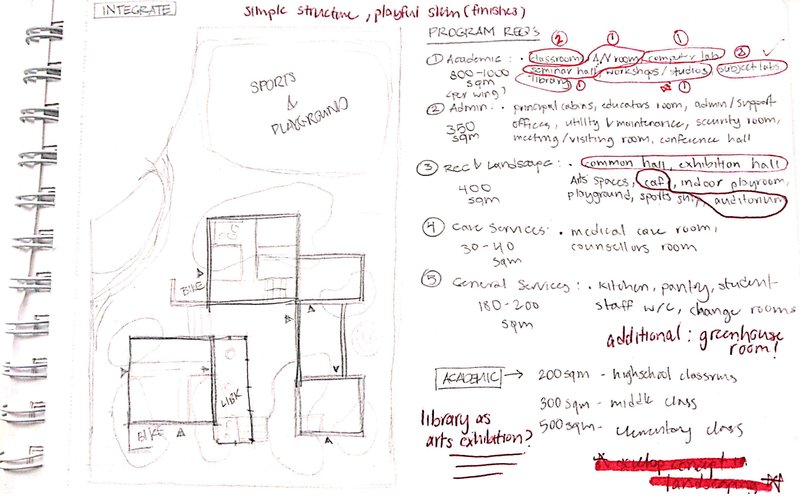 INTEGRATE
simple structure, playful skin (finishes)
PROGRAM REQ'S
② ① ①
① Academic : • classroom, A/V room, computer lab, ②
800-1000 seminar hall, workshops/studios, subject labs,
sqm library ① ①
(per wing)
② Admin : • principal cabins, educators room, admin/support
350 offices, utility & maintenance, security room,
sqm meeting/visiting room, conference hall
③ Rec & Landscape : • common hall, exhibition hall
400 Arts spaces, caf, indoor playroom,
sqm playground, sports
auditorium
④ Care Services : • medical care room,
30-40 counsellors room
sqm
⑤ General Services : • kitchen, pantry, student
180-200 staff w/c, change rooms
sqm
additional : greenhouse
room!
ACADEMIC → 200 sqm - highschool classrms
300 sqm - middle class
500 sqm - elementary class
library as
arts exhibition?
develop concept
landscaping
SPORTS
&
PLAYGROUND
BIKE
LIBR
BIKE